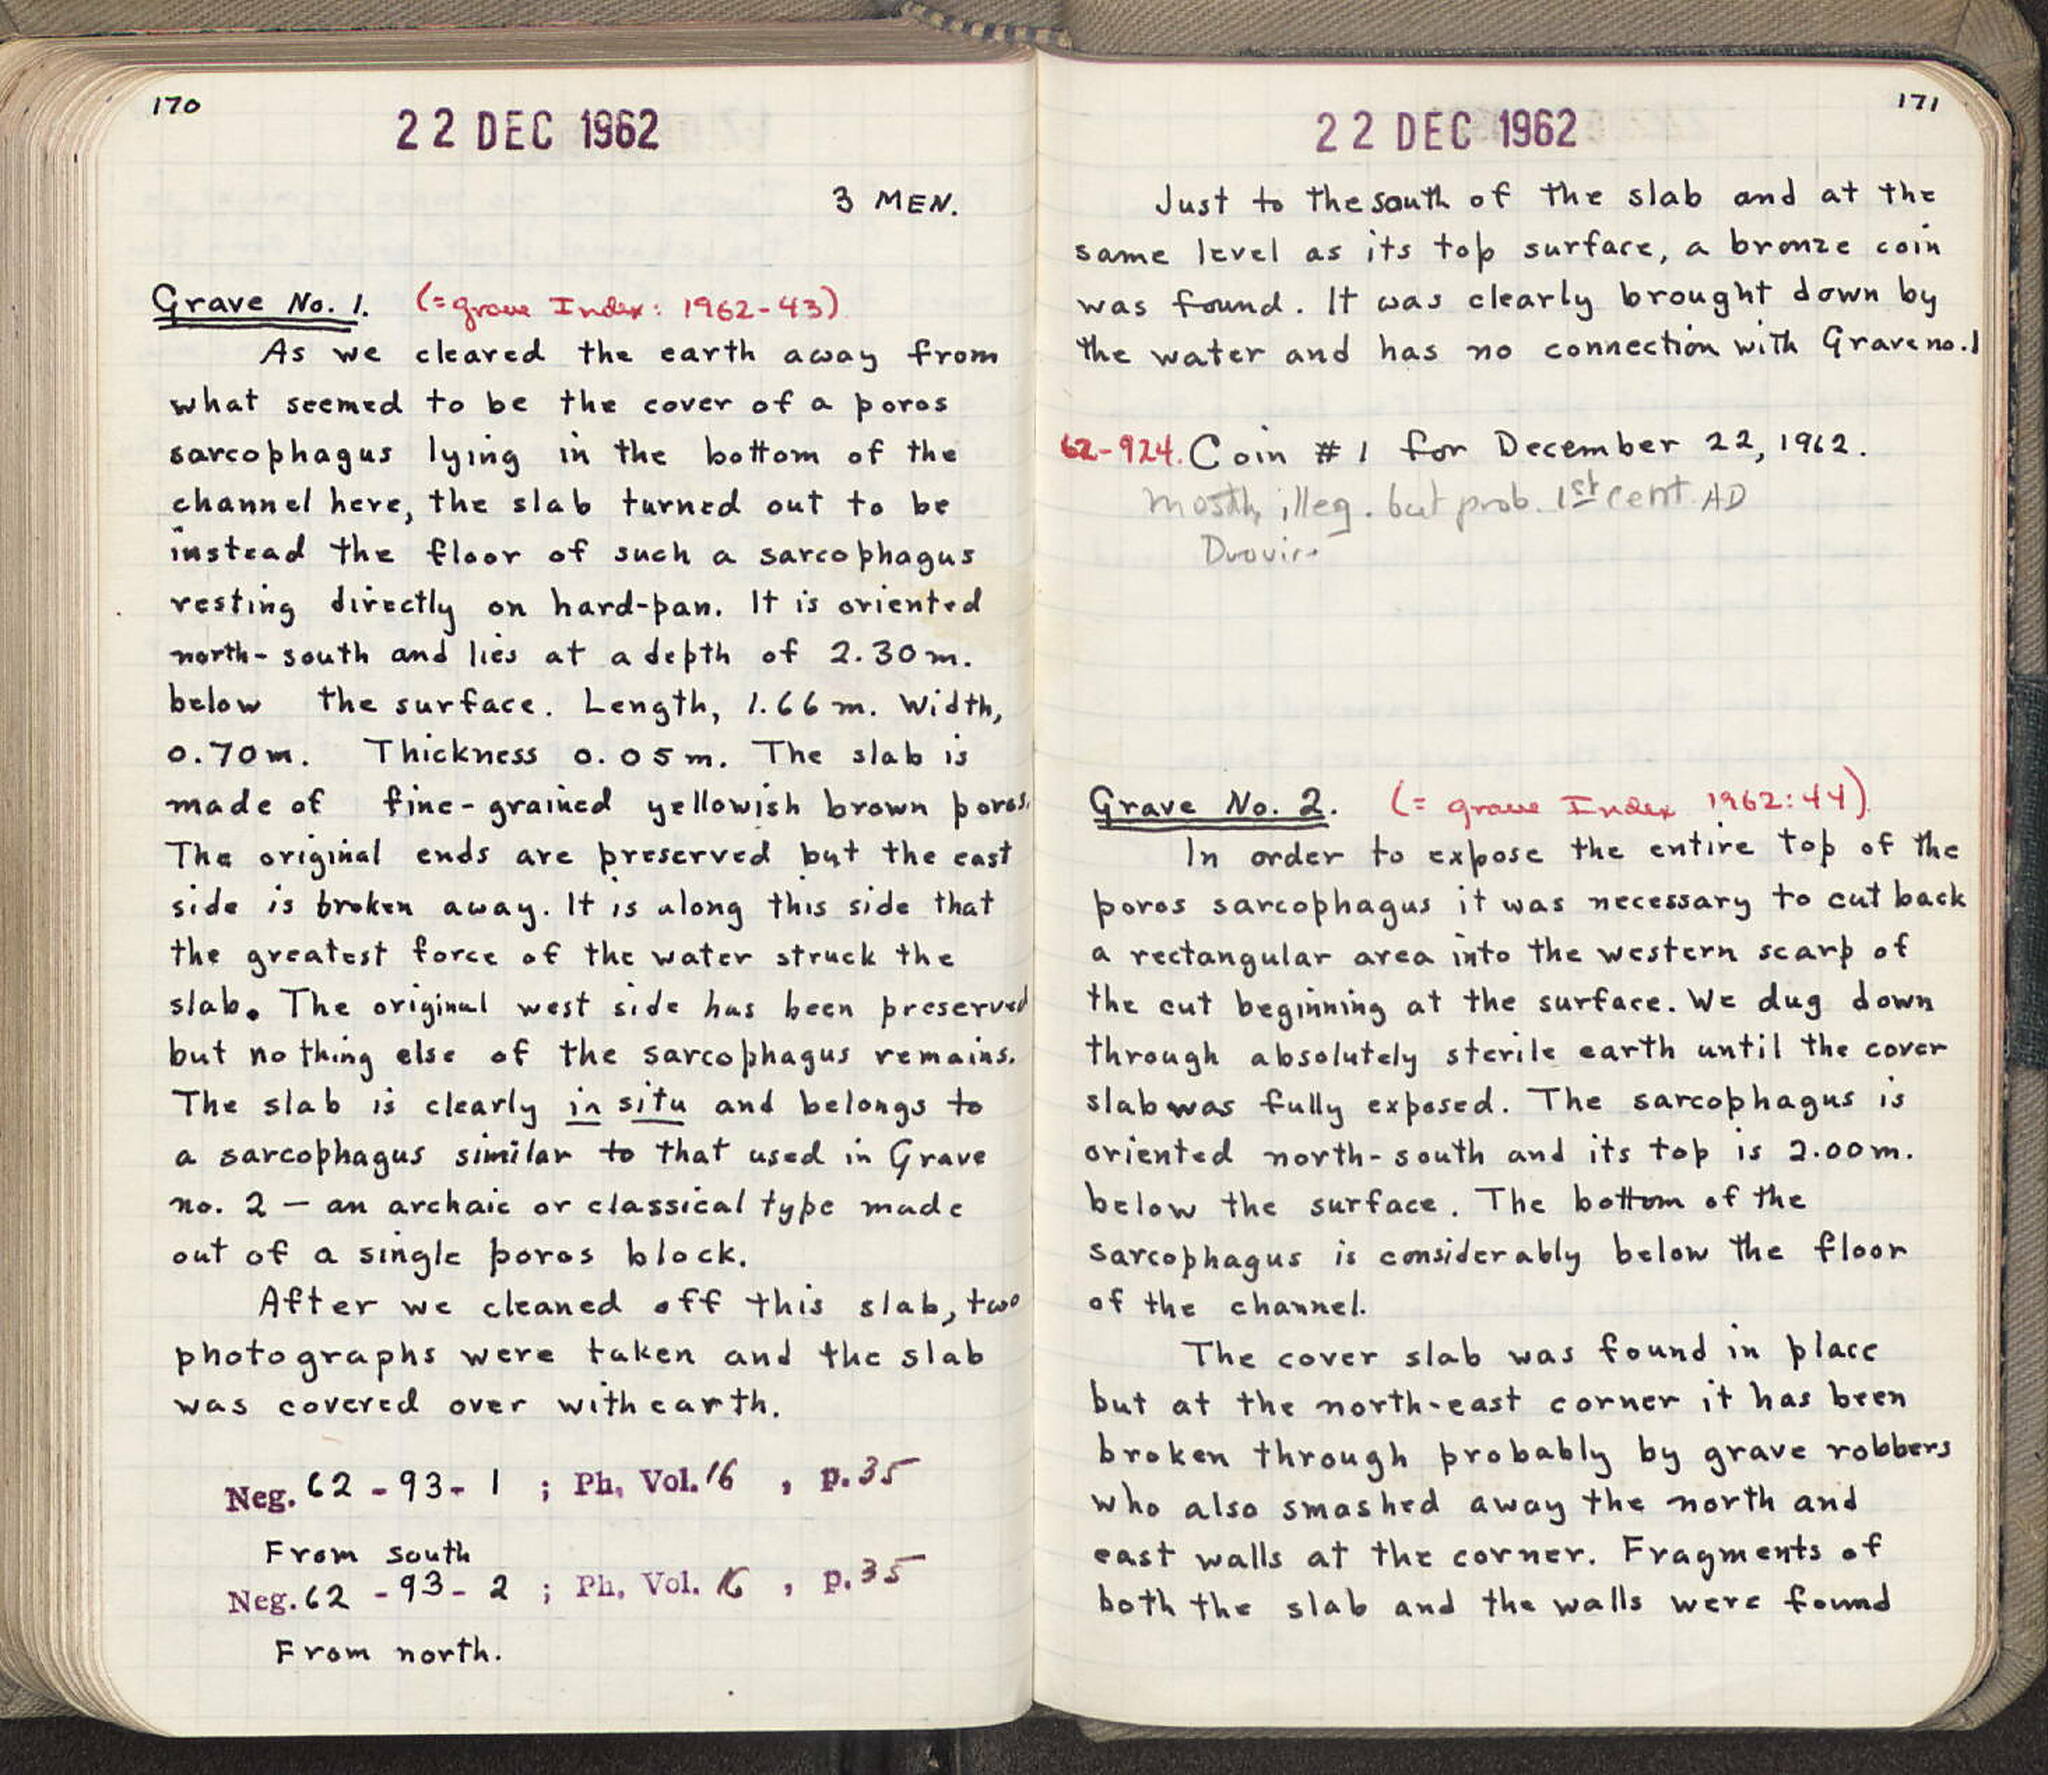 170
22 DEC 1962
3 MEN.
Grave No. 1. (= grave Index: 1962-43)
As we cleared the earth away from
what seemed to be the cover of a poros
sarcophagus lying in the bottom of the
channel here, the slab turned out to be
instead the floor of such a sarcophagus
resting directly on hard-pan. It is oriented
north-south and lies at a depth of 2.30m.
below the surface. Length, 1.66m. Width,
0.70m. Thickness 0.05m. The slab is
made of fine-grained yellowish brown poros.
The original ends are preserved but the east
side is broken away. It is along this side that
the greatest force of the water struck the
slab. The original west side has been preserved
but nothing else of the sarcophagus remains.
The slab is clearly in situ and belongs to
a sarcophagus similar to that used in Grave
no. 2 – an archaic or classical type made
out of a single poros block.
After we cleaned off this slab, two
photographs were taken and the slab
was covered over with earth.
Neg. 62 - 93 - 1 ; Ph. Vol. 16 , p. 35
From south
Neg. 62 - 93 - 2 ; Ph. Vol. 16 , p. 35
From north.
171
22 DEC 1962
Just to the south of the slab and at the
same level as its top surface, a bronze coin
was found. It was clearly brought down by
the water and has no connection with Grave no. 1
62-924. Coin # 1 for December 22, 1962.
mostly illeg. but prob. 1st cent AD
Duovir.
Grave No. 2. (= grave Index 1962:44)
In order to expose the entire top of the
poros sarcophagus it was necessary to cut back
a rectangular area into the western scarp of
the cut beginning at the surface. We dug down
through absolutely sterile earth until the cover
slab was fully exposed. The sarcophagus is
oriented north-south and its top is 2.00m.
below the surface. The bottom of the
sarcophagus is considerably below the floor
of the channel.
The cover slab was found in place
but at the north-east corner it has been
broken through probably by grave robbers
who also smashed away the north and
east walls at the corner. Fragments of
both the slab and the walls were found